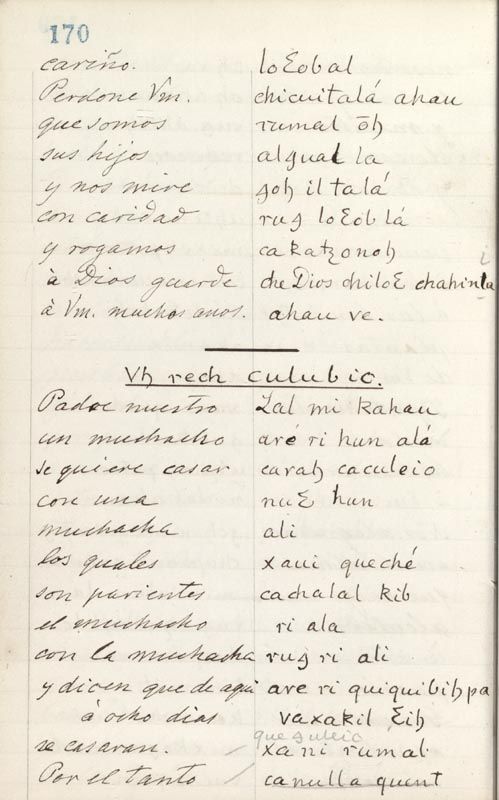 170
cariño. loƐobal
Perdone Vm. chicuitalá ahau
que somos rumal oꜧ
sus hijos algual la
y nos mire goꜧ il talá
con caridad rug loƐoblá
y rogamos cakatzonoꜧ
à Dios guarde che Dios chiloƐ chahinla
à Vm. muchos anos. ahau ve.
Vꜧ rech culubic.
Padre nuestro Lal mi kahau
un muchacho aré ri hun alá
se quiere casar caraꜧ caculeio
con una nuƐ hun
muchacha ali
los quales xaui queché
son parientes cachalal kib
el muchacho ri ala
con la muchacha rug ri ali
y dicen que de aqui are ri quiquibiꜧ pa
à ocho dias vaxakil Ɛiꜧ
que guleio
se casaran. xa ni rumal
Por el tanto canulla quent